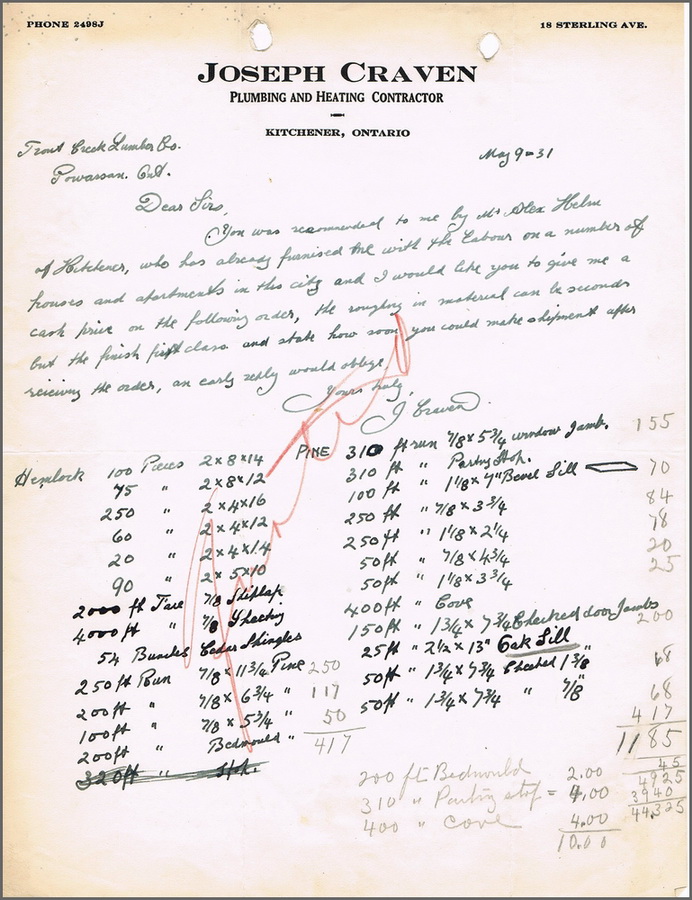 PHONE 2498J
18 STERLING AVE.
JOSEPH CRAVEN
PLUMBING AND HEATING CONTRACTOR
KITCHENER, ONTARIO
Trout Creek Lumber Co.
May 9=31
Powassan. Ont.
Dear Sirs,
You was recomended to me by Mr Alex Helm
of Kitchener, who has already furnised the with the labour on a number of
houses and apartments in this city and I would like you to give me a
cash price on the following order, the roughing in material can be seconds
but the finish first class and state how soon you could make shipment after
reiciving the order, an early reply would oblige,
Yours truly,
J Craven.
Hemlock 100 Pieces 2x8x14
75 " 2x8x12
250 " 2x4x16
60 " 2x4x12
20 " 2x4x14
90 " 2x5x10
2000 ft Face 7/8 Shiplap
4000 ft " 7/8 Sheeting
54 Bundles Cedar Shingles
250 ft Run 7/8 x 11 3/4 Pine 250
200 ft " 7/8 x 6 3/4 " 117
100 ft " 7/8 x 5 3/4 " 50
200 ft " Bedmould " 417
320 ft "
PINE 310 ft run 7/8 x 5 3/4 window Jamb. 155
310 ft " Parting Stop.
100 ft " 1 1/8 x 7" Bevel Sill 70
250 ft " 7/8 x 3 3/4 84
250 ft " 1 1/8 x 2 1/4 78
50 ft " 7/8 x 4 3/4 20
50 ft " 1 1/8 x 3 3/4 25
400 ft " Cove
150 ft " 1 3/4 x 7 3/4 Checked door Jambs 200
25 ft " 2 1/2 x 13" Oak Sill
50 ft " 1 3/4 x 7 3/4 Checked 1 3/8 68
50 ft " 1 3/4 x 7 3/4 " 7/8" 68
417
1185
45
4925
3940
44.325
200 ft Bedmould 2.00
310 " Parting stop = 4.00
400 " Cove 4.00
10.00